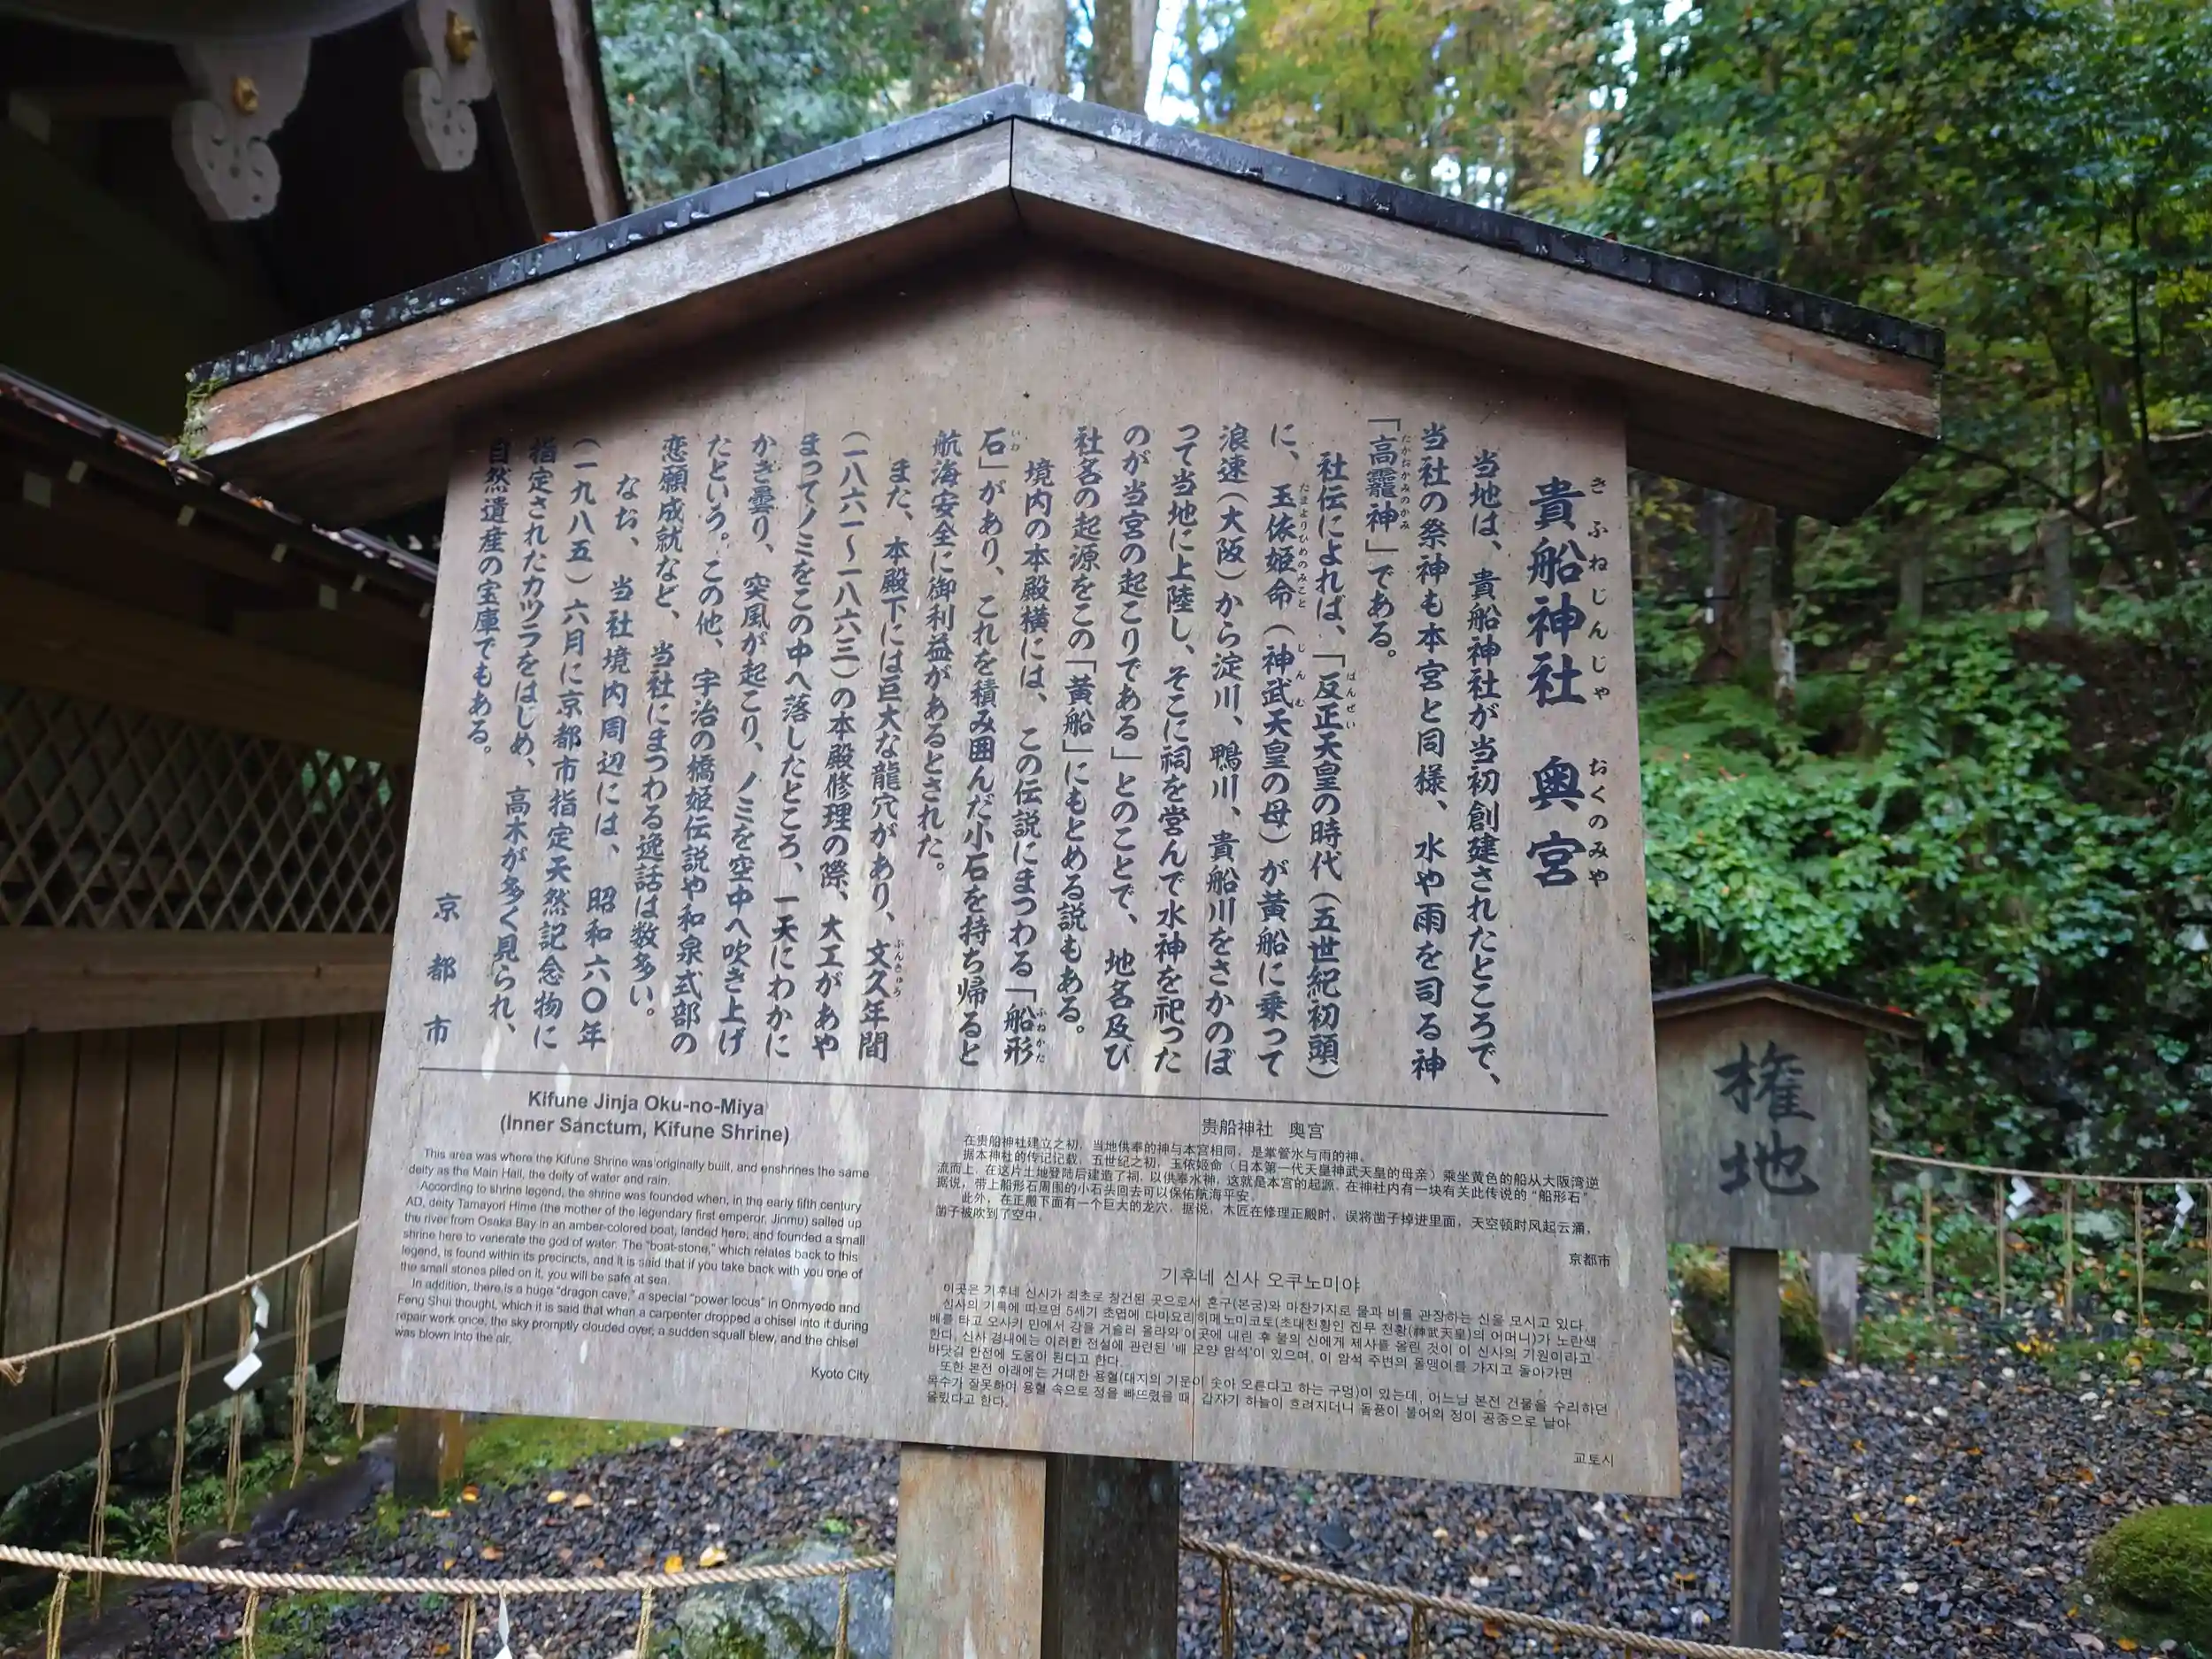 貴船神社 奥宮
きふねじんじゃ おくのみや
当地は、貴船神社が当初創建されたところで、
当社の祭神も本宮と同様、水や雨を司る神
「高龗神」である。
たかおかみのかみ
社伝によれば、「反正天皇の時代(五世紀初頭)
はんぜい
に、玉依姫命(神武天皇の母)が黄船に乗って
たまよりひめのみこと じんむ
浪速(大阪)から淀川、鴨川、貴船川をさかのぼ
って当地に上陸し、そこに祠を営んで水神を祀った
のが当宮の起こりである」とのことで、地名及び
社名の起源をこの「黄船」にもとめる説もある。
境内の本殿横には、この伝説にまつわる「船形
ふねかた
石」があり、これを積み囲んだ小石を持ち帰ると
いわ
航海安全に御利益があるとされた。
また、本殿下には巨大な龍穴があり、文久年間
ぶんきゅう
(一八六一~一八六三)の本殿修理の際、大工があや
まってノミをこの中へ落したところ、一天にわかに
かき曇り、突風が起こり、ノミを空中へ吹き上げ
たという。この他、宇治の橋姫伝説や和泉式部の
恋願成就など、当社にまつわる逸話は数多い。
なお、当社境内周辺には、昭和六〇年
(一九八五)六月に京都市指定天然記念物に
指定されたカツラをはじめ、高木が多く見られ、
自然遺産の宝庫でもある。
京都市
Kifune Jinja Oku-no-Miya
(Inner Sanctum, Kifune Shrine)
This area was where the Kifune Shrine was originally built, and enshrines the same
deity as the Main Hall, the deity of water and rain.
According to shrine legend, the shrine was founded when, in the early fifth century
AD, deity Tamayori Hime (the mother of the legendary first emperor, Jinmu) sailed up
the river from Osaka Bay in an amber-colored boat, landed here, and founded a small
shrine here to venerate the god of water. The "boat-stone," which relates back to this
legend, is found within its precincts, and it is said that if you take back with you one of
the small stones piled on it, you will be safe at sea.
In addition, there is a huge "dragon cave," a special "power locus" in Onmyodo and
Feng Shui thought, which it is said that when a carpenter dropped a chisel into it during
repair work once, the sky promptly clouded over, a sudden squall blew, and the chisel
was blown into the air.
Kyoto City
贵船神社 奥宫
在贵船神社建立之初,当地供奉的神与本宫相同,是掌管水与雨的神。
据本神社的传记记载,五世纪之初,玉依姬命(日本第一代天皇神武天皇的母亲)乘坐黄色的船从大阪湾逆
流而上,在这片土地登陆后建造了祠,以供奉水神,这就是本宫的起源。在神社内有一块有关此传说的"船形石"。
据说,带上船形石周围的小石头回去可以保佑航海平安。
此外,在正殿下面有一个巨大的龙穴,据说,木匠在修理正殿时,误将凿子掉进里面,天空顿时风起云涌,
凿子被吹到了空中。
京都市
기후네 신사 오쿠노미야
이곳은 기후네 신사가 최초로 창건된 곳으로서 혼구(본궁)와 마찬가지로 물과 비를 관장하는 신을 모시고 있다.
신사의 기록에 따르면 5세기 초엽에 다마요리히메노미코토(초대천황인 진무 천황(神武天皇)의 어머니)가 노란색
배를 타고 오사카 만에서 강을 거슬러 올라와 이곳에 내린 후 물의 신에게 제사를 올린 것이 이 신사의 기원이라고
한다. 신사 경내에는 이러한 전설에 관련된 '배 모양 암석'이 있으며, 이 암석 주변의 돌멩이를 가지고 돌아가면
바닷길 안전에 도움이 된다고 한다.
또한 본전 아래에는 거대한 용혈(대지의 기운이 솟아 오른다고 하는 구멍)이 있는데, 어느날 본전 건물을 수리하던
목수가 잘못하여 용혈 속으로 정을 빠뜨렸을 때, 갑자기 하늘이 흐려지더니 돌풍이 불어와 정이 공중으로 날아
올랐다고 한다.
교토시
権地